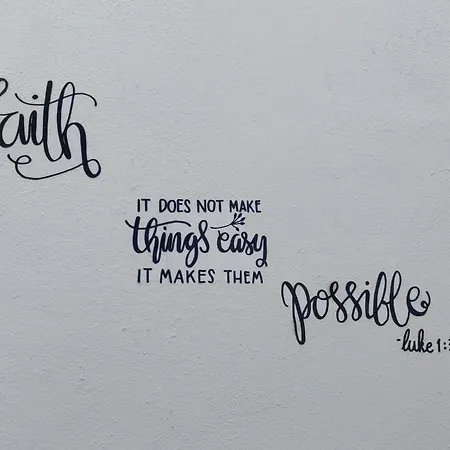 faith
IT DOES NOT MAKE
things easy
IT MAKES THEM
possible
-luke 1:3